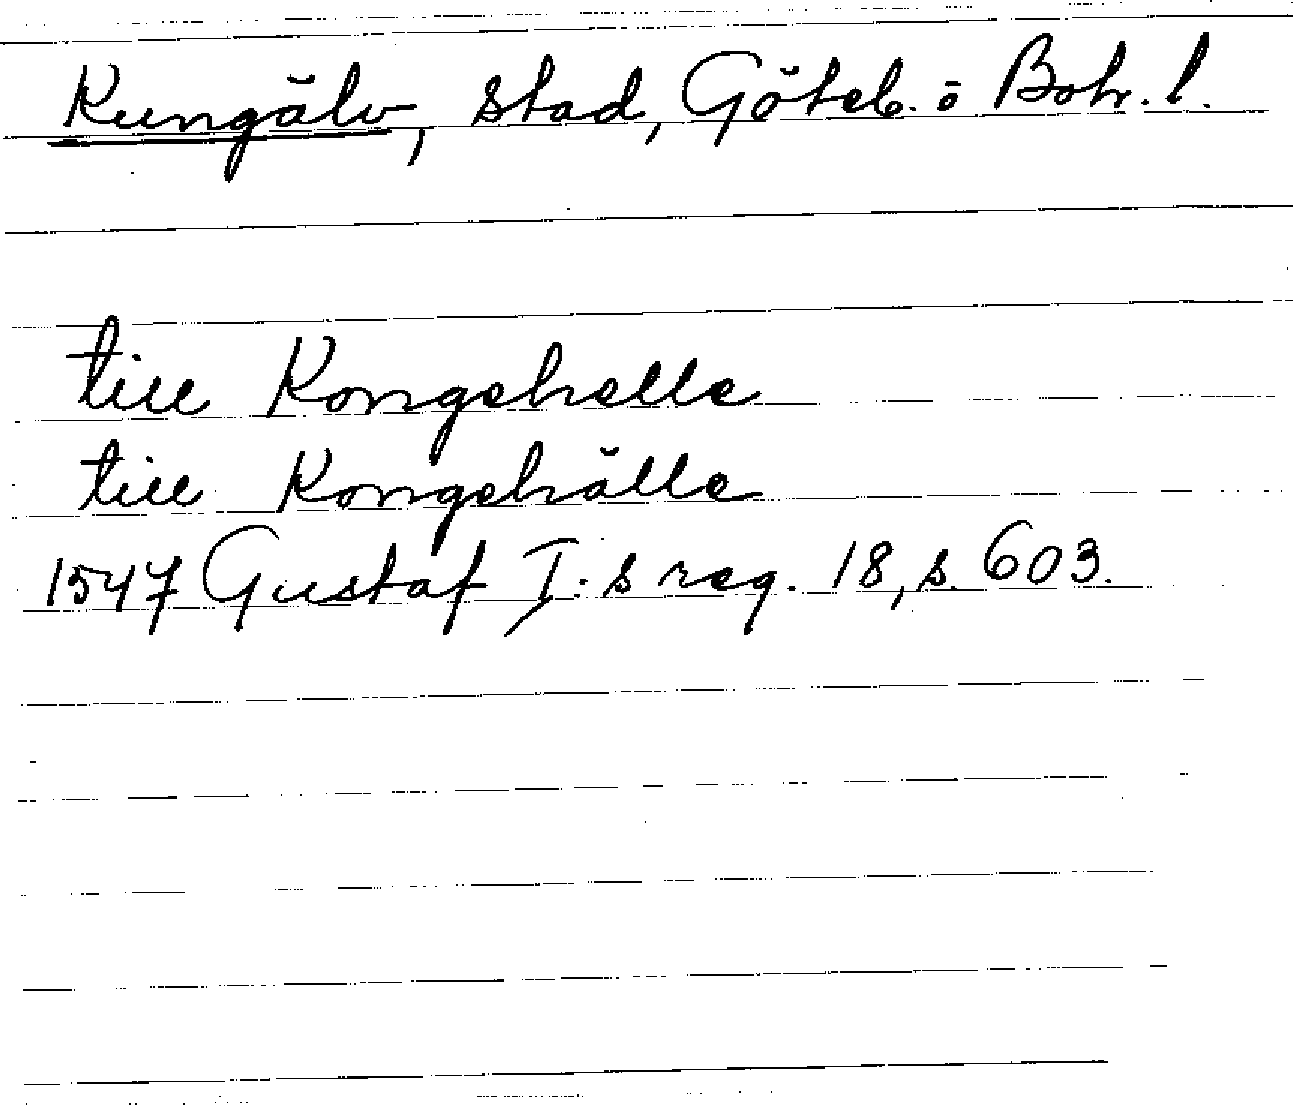 Kungälv, stad, Göteb. o Boh. l.
till Kongehelle
till Kongehälle
1547 Gustaf I:s reg. 18, s. 603.